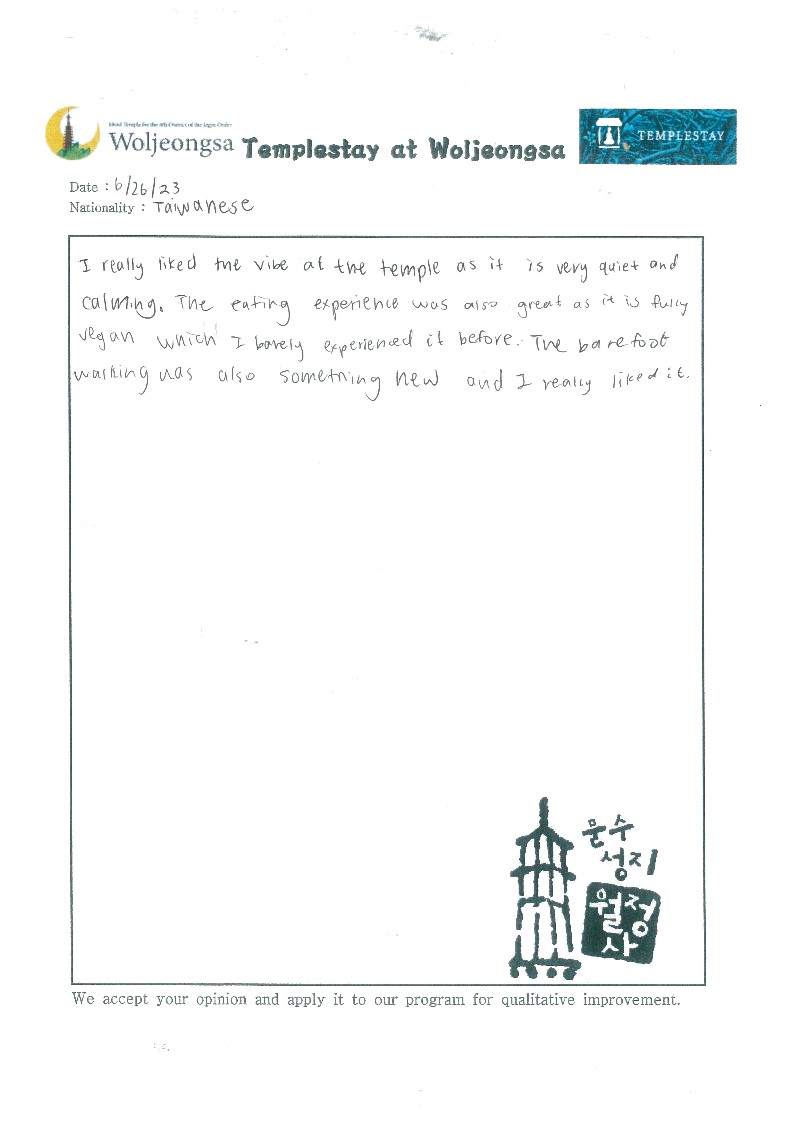 Head Temple for the 4th District of the Jogye Order
Woljeongsa Templestay at Woljeongsa
TEMPLESTAY
Date : 6/26/23
Nationality : Taiwanese
I really liked the vibe at the temple as it is very quiet and
calming. The eating experience was also great as it is fully
vegan which I barely experienced it before. The barefoot
walking was also something new and I really liked it.
문수
성지
월정
사
We accept your opinion and apply it to our program for qualitative improvement.